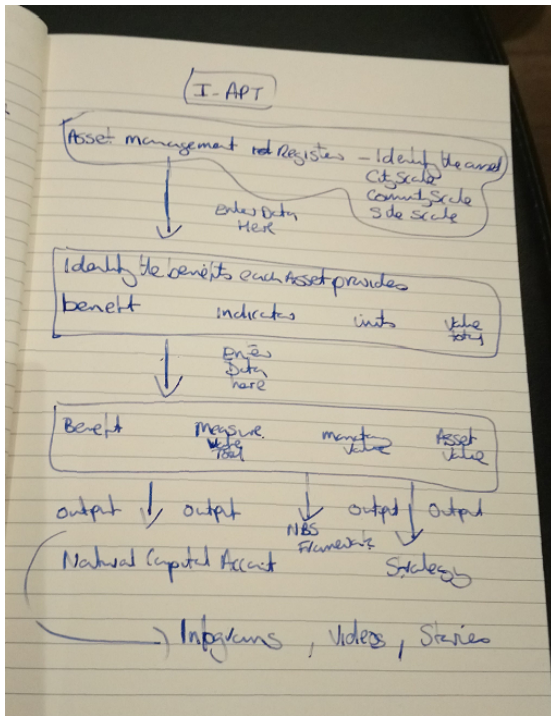 I-APT
Asset management Register - Identify the asset
City Scale
Community Scale
Site Scale
Enter Data
Here
Identify the benefits each Asset provides
benefit indicator units Value
Enter
Data
here
Benefit measure monetary Asset
Value Value Value
output output output output
NBS
Frameworks
Natural Capital Account Strategy
Infograms, Videos, Stories